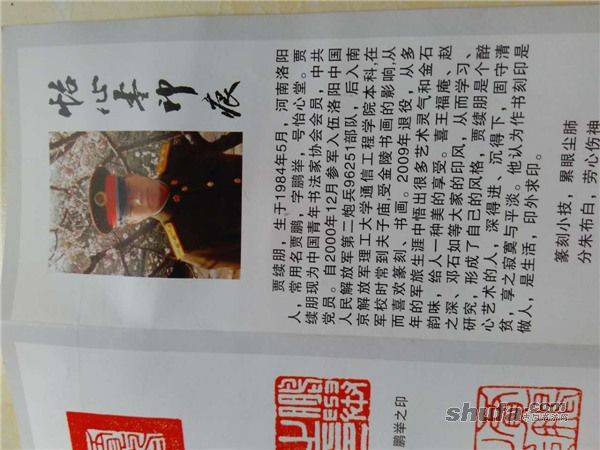 怡心堂印痕
贾续朋，生于1984年5月，河南洛阳
人，常用名贾鹏，字鹏举，号怡心堂。贾
续朋现为中国青年书法家协会会员，中共
党员。自2000年12月参军入伍洛阳中国
人民解放军第二炮兵96251部队，后入南
京解放军理工大学通信工程学院本科,在
军校时常到夫子庙,受金陵书画的影响,从
而喜欢篆刻、书画。2009年退役，从多
年的军旅生涯中悟出很多艺术灵气和金石
韵味，给人一种美的享受。喜王福庵、赵
之深、邓石如等大家的印风，从而学习、
研究，形成了自己的风格，贾续朋是个醉
心艺术的人，深得进、沉得下，固守清
贫，享之寂寞与平淡。他认为作书刻印是
做人，是生活，印外求印。
篆刻小技，累眼尘肺
分朱布白，劳心伤神
鹏举之印
shufa.com